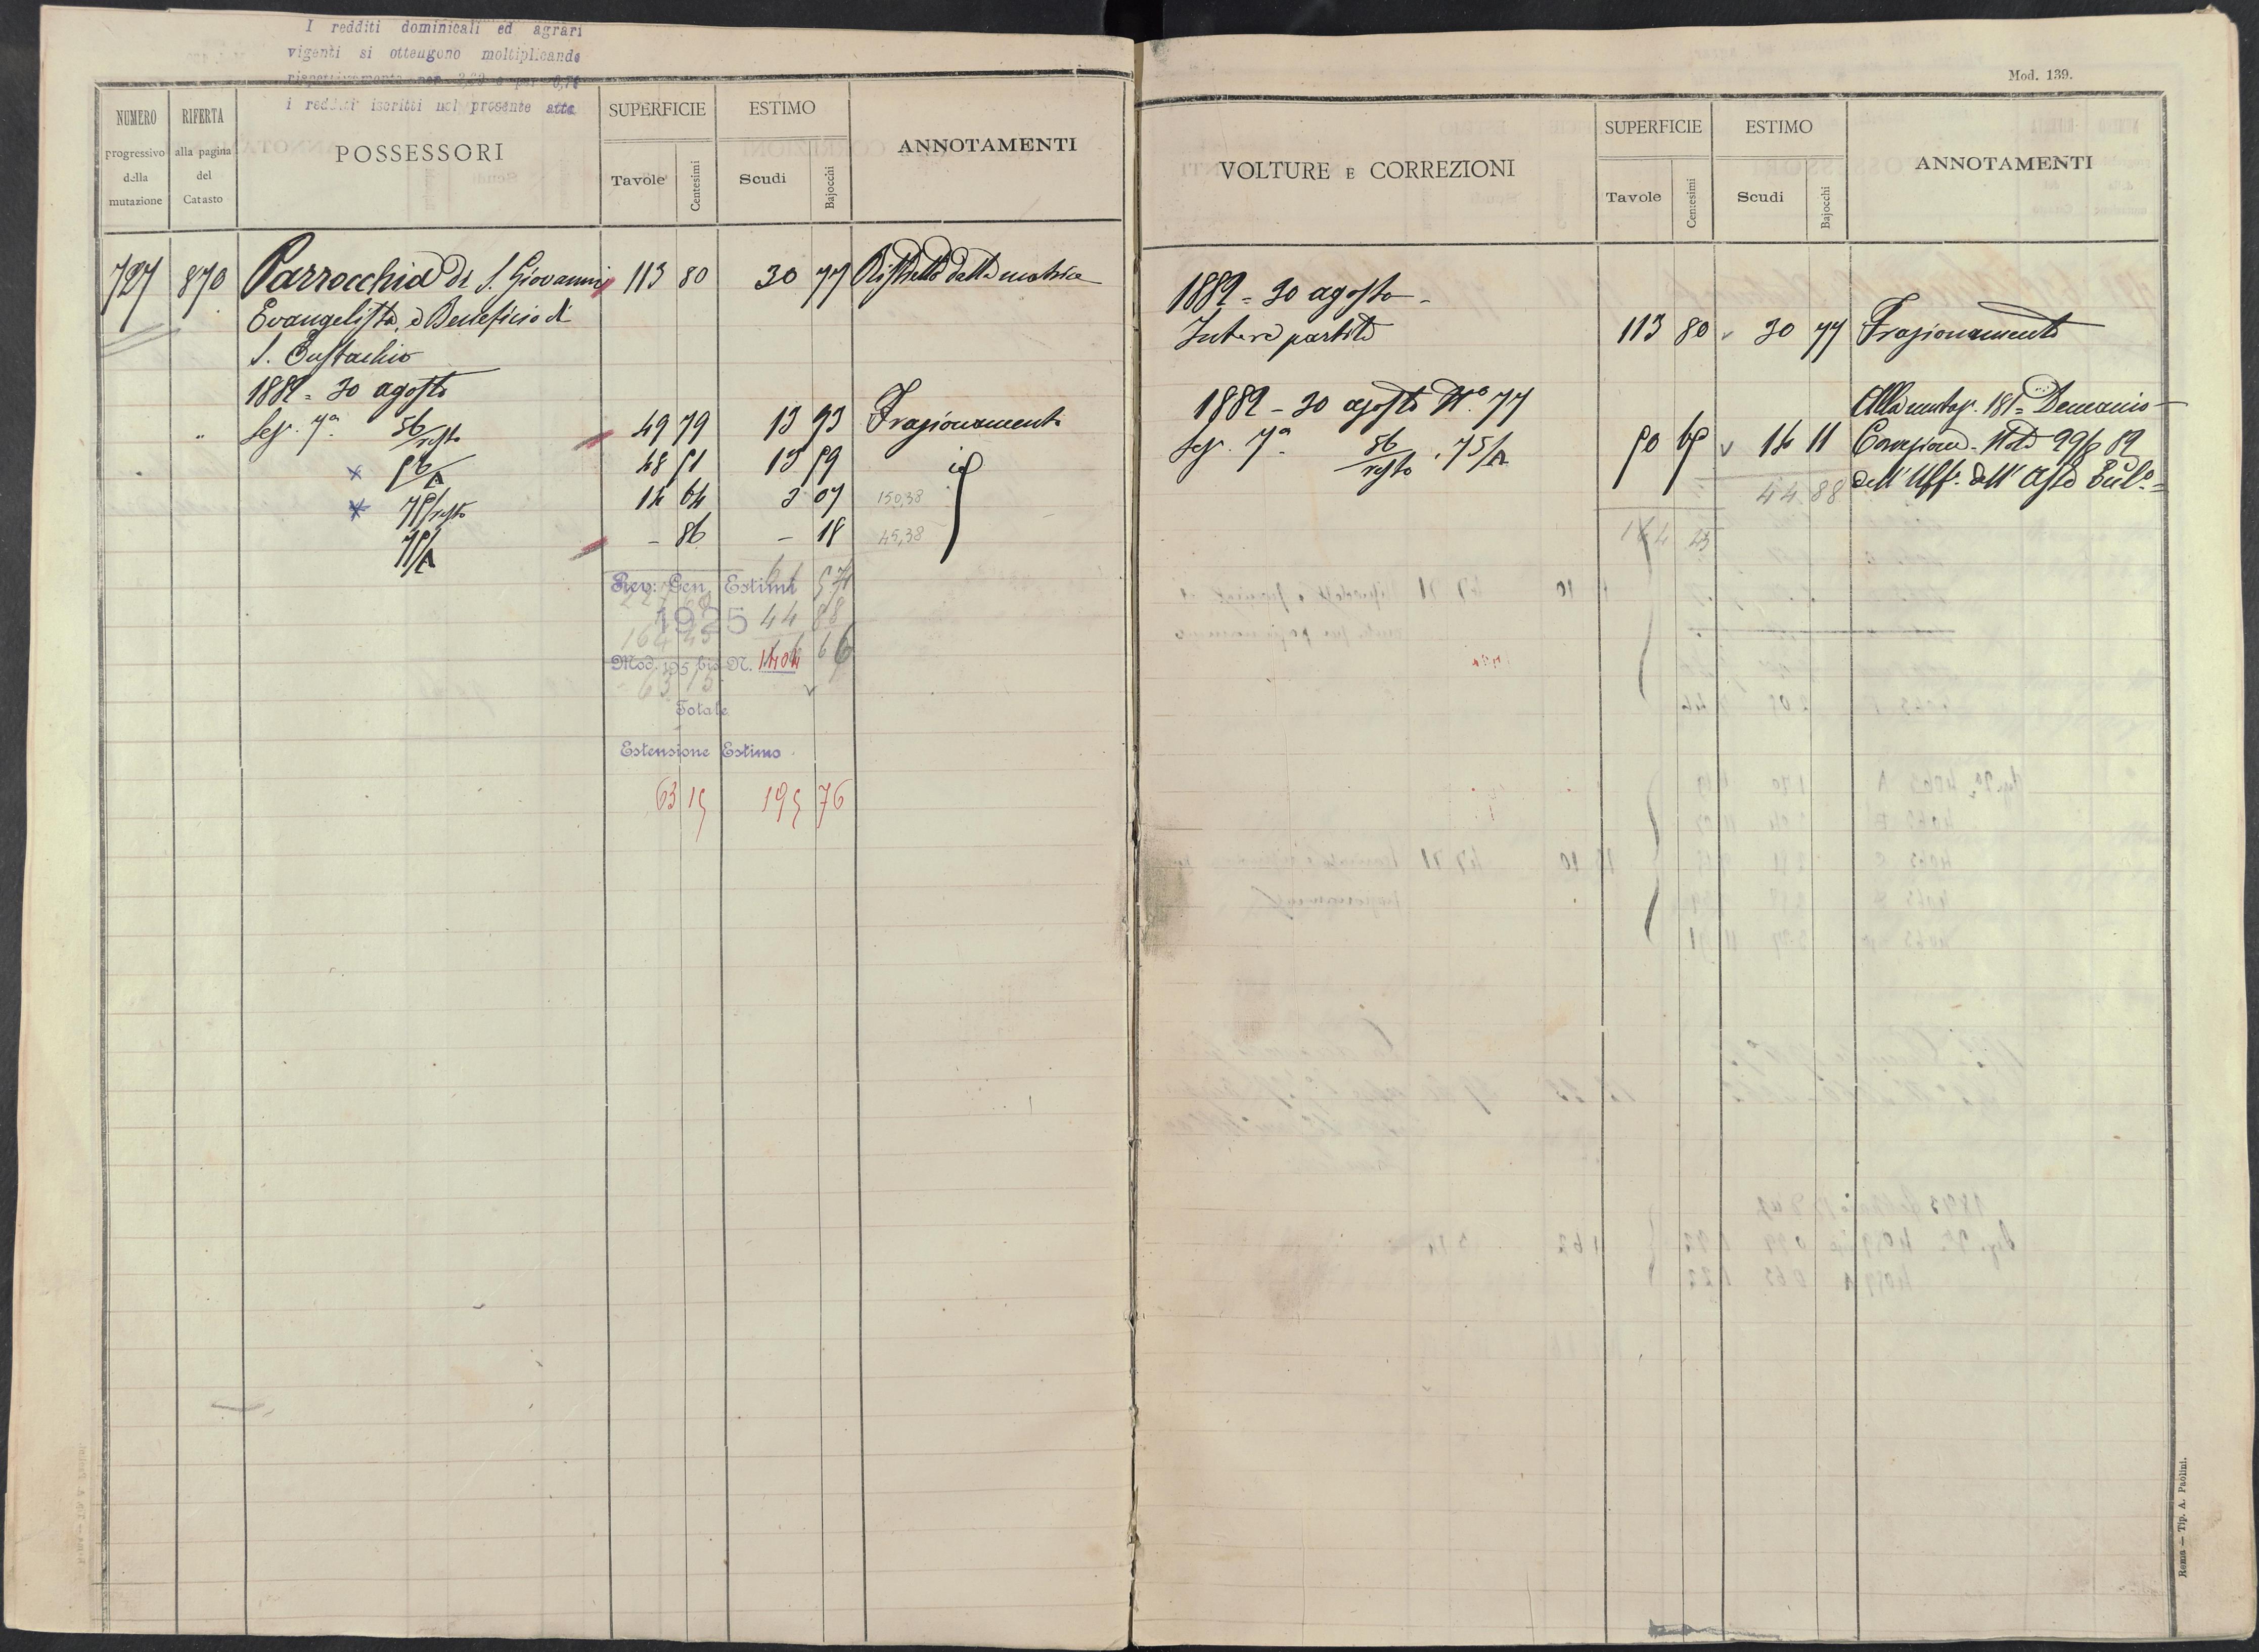 I redditi dominicali ed agrari
vigenti si ottengono moltiplicando
rispettivamente per 3,20 e per 0,75
i redditi iscritti nel presente atto
NUMERO progressivo della mutazione
RIFERTA alla pagina del Catasto
POSSESSORI
SUPERFICIE
Tavole Centesimi
ESTIMO
Scudi Bajocchi
ANNOTAMENTI
727 870 Parrocchia di S. Giovanni 113 80 30 77 Ristretto dalla matrice
Evangelista, e Beneficio di
S. Eustachio
1882 = 30 agosto
" Sez. 7a 56/resto 49 79 13 93 Frazionamento
56/A 48 51 13 59 id
75/resto 14 64 3 07 150,38
75/A - 86 - 18 45,38
Rev: Gen. Estimi
61 54
1925
44 88
164 45
Mod. 195 bis N. 1404
63 15
Totale
Estensione Estimo
63 15 195 76
Mod. 139.
VOLTURE E CORREZIONI
SUPERFICIE
Tavole Centesimi
ESTIMO
Scudi Bajocchi
ANNOTAMENTI
1882 = 30 agosto -
Intera partita 113 80 30 77 Frazionamento
1882 - 30 agosto N.° 77 Alla mutaz. 181 = Demanio -
Sez. 7a 56/resto . 75/A 50 65 14 11
44 88 dell' Uff.
164 45
Roma — Tip. A. Paolini.